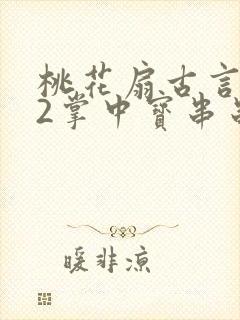 桃花扇古言
2掌中寳串
暖非凉